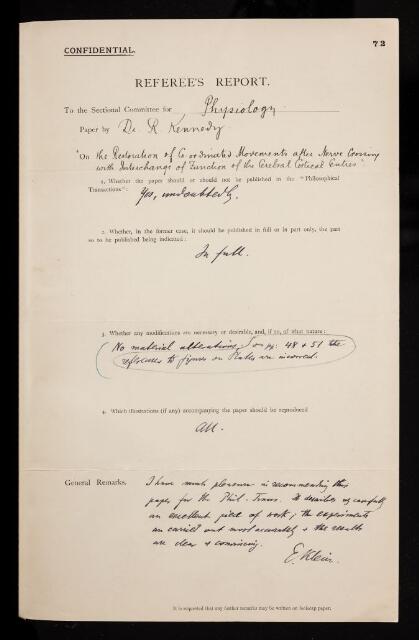 72
CONFIDENTIAL.
REFEREE'S REPORT.
To the Sectional Committee for Physiology
Paper by Dr. R. Kennedy
"On the Restoration of Co-ordinated Movements after Nerve Crossing
with Interchange of Function of the Cerebral Cortical Centres"
1. Whether the paper should or should not be published in the "Philosophical
Transactions":
Yes, undoubtedly.
2. Whether, in the former case, it should be published in full or in part only, the part
so to be published being indicated:
In full.
3. Whether any modifications are necessary or desirable, and, if so, of what nature:
No material alterations; on pp. 48 + 51 the
references to figures on Plates are incorrect.
4. Which illustrations (if any) accompanying the paper should be reproduced
All.
General Remarks.
I have much pleasure in recommending this
paper for the Phil. Trans. It describes carefully
an excellent piece of work; the experiments
are carried out most accurately & the results
are clear & convincing.
E. Klein.
It is requested that any further remarks may be written on foolscap paper.